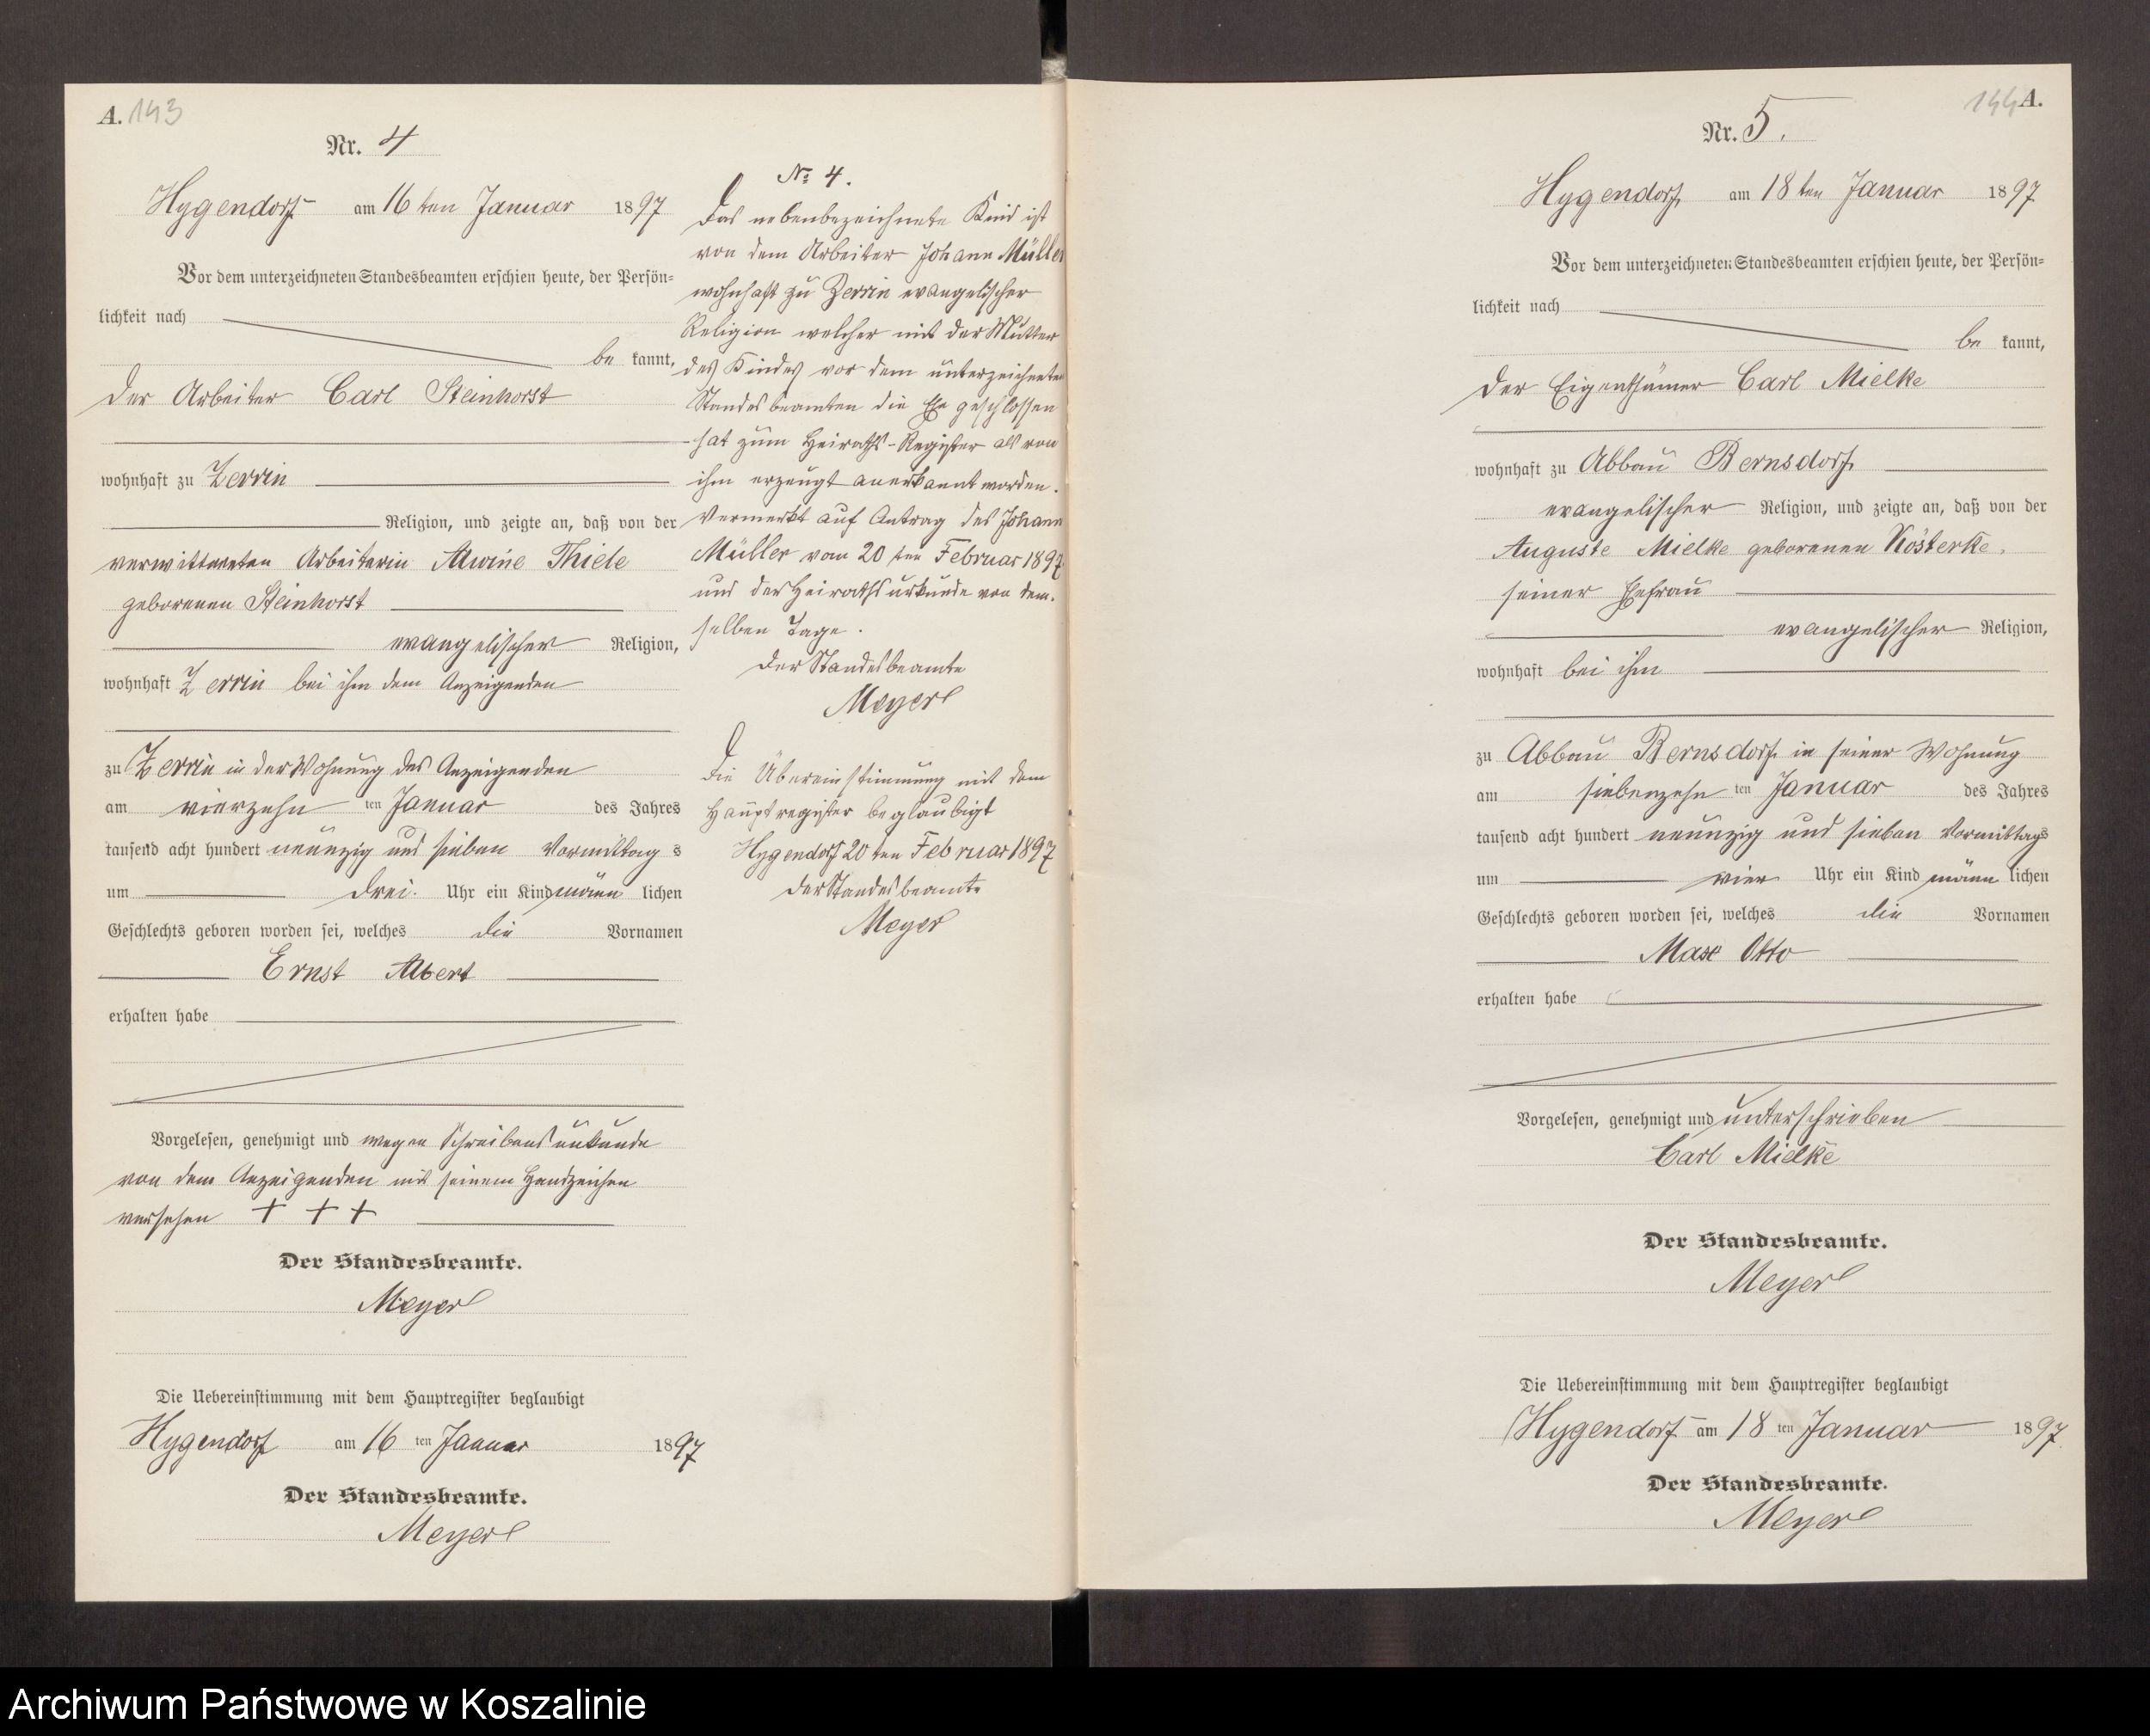 A. 143
Nr. 4
Hygendorf am 16ten Januar 1897
Vor dem unterzeichneten Standesbeamten erschien heute, der Persön=
lichkeit nach
be kannt,
der Arbeiter Carl Steinhorst
wohnhaft zu Zerrin
Religion, und zeigte an, daß von der
verwittweten Arbeiterin Alwine Thiele
geborenen Steinhorst
evangelischer Religion,
wohnhaft Zerrin bei ihm dem Anzeigenden
zu Zerrin in der Wohnung des Anzeigenden
am vierzehn ten Januar des Jahres
tausend acht hundert neunzig und sieben Vormittag s
um drei Uhr ein Kind männ lichen
Geschlechts geboren worden sei, welches die Vornamen
Ernst Albert
erhalten habe
Vorgelesen, genehmigt und wegen Schreibensunkunde
von dem Anzeigenden mit seinem Handzeichen
versehen + + +
Der Standesbeamte.
Meyer
Die Uebereinstimmung mit dem Hauptregister beglaubigt
Hygendorf am 16 ten Januar 1897
Der Standesbeamte.
Meyer
No 4.
Das nebenbezeichnete Kind ist
von dem Arbeiter Johann Müller
wohnhaft zu Zerrin evangelischer
Religion welcher mit der Mutter
des Kindes vor dem unterzeichneten
Standesbeamten die Ehe geschlossen
hat zum Heiraths-Register als von
ihm erzeugt anerkannt worden.
Vermerkt auf Antrag des Johann
Müller vom 20ten Februar 1897
und der Heirathsurkunde von dem.
selben Tage.
Der Standesbeamte
Meyer
Die Übereinstimmung mit dem
Hauptregister beglaubigt
Hygendorf 20ten Februar 1897
Der Standesbeamte
Meyer
144 A.
Nr. 5.
Hygendorf am 18ten Januar 1897
Vor dem unterzeichneten Standesbeamten erschien heute, der Persön=
lichkeit nach
be kannt,
der Eigenthümer Carl Mielke
wohnhaft zu Abbau Bernsdorf
evangelischer Religion, und zeigte an, daß von der
Auguste Mielke geborenen Kösterke,
seiner Ehefrau
evangelischer Religion,
wohnhaft bei ihm
zu Abbau Bernsdorf in seiner Wohnung
am siebenzehn ten Januar des Jahres
tausend acht hundert neunzig und sieben Vormittags
um vier Uhr ein Kind männ lichen
Geschlechts geboren worden sei, welches die Vornamen
Max Otto
erhalten habe
Vorgelesen, genehmigt und unterschrieben
Carl Mielke
Der Standesbeamte.
Meyer
Die Uebereinstimmung mit dem Hauptregister beglaubigt
Hygendorf am 18 ten Januar 1897
Der Standesbeamte.
Meyer
Archiwum Państwowe w Koszalinie